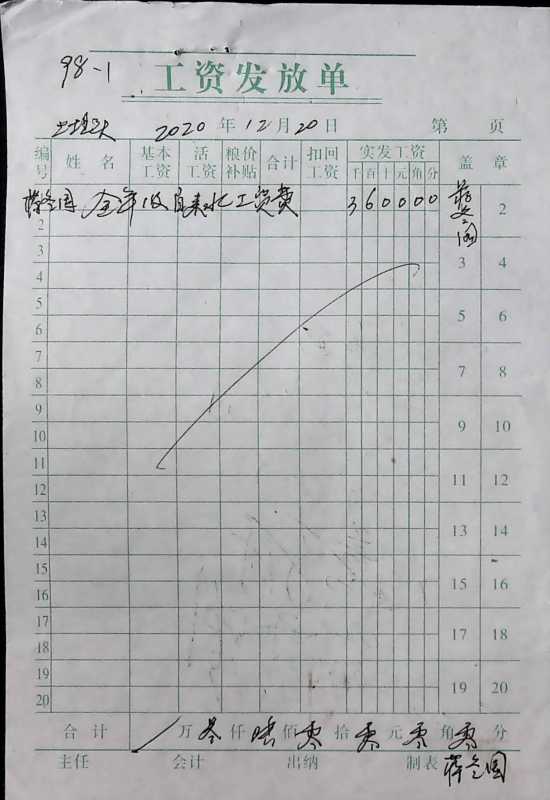 98-1
工资发放单
2020年12月20日 第 页
编号 姓名 基本工资 活工资 粮价补贴 合计 扣回工资 实发工资 盖章
千百十元角分
全年收自来水工资费 360000
2
2
3 3 4
4
5 5 6
6
7 7 8
8
9 9 10
10
11 11 12
12
13 13 14
14
15 15 16
16
17 17 18
18
19 19 20
20
合计 万叁仟陆佰零拾零元零角零分
主任 会计 出纳 制表